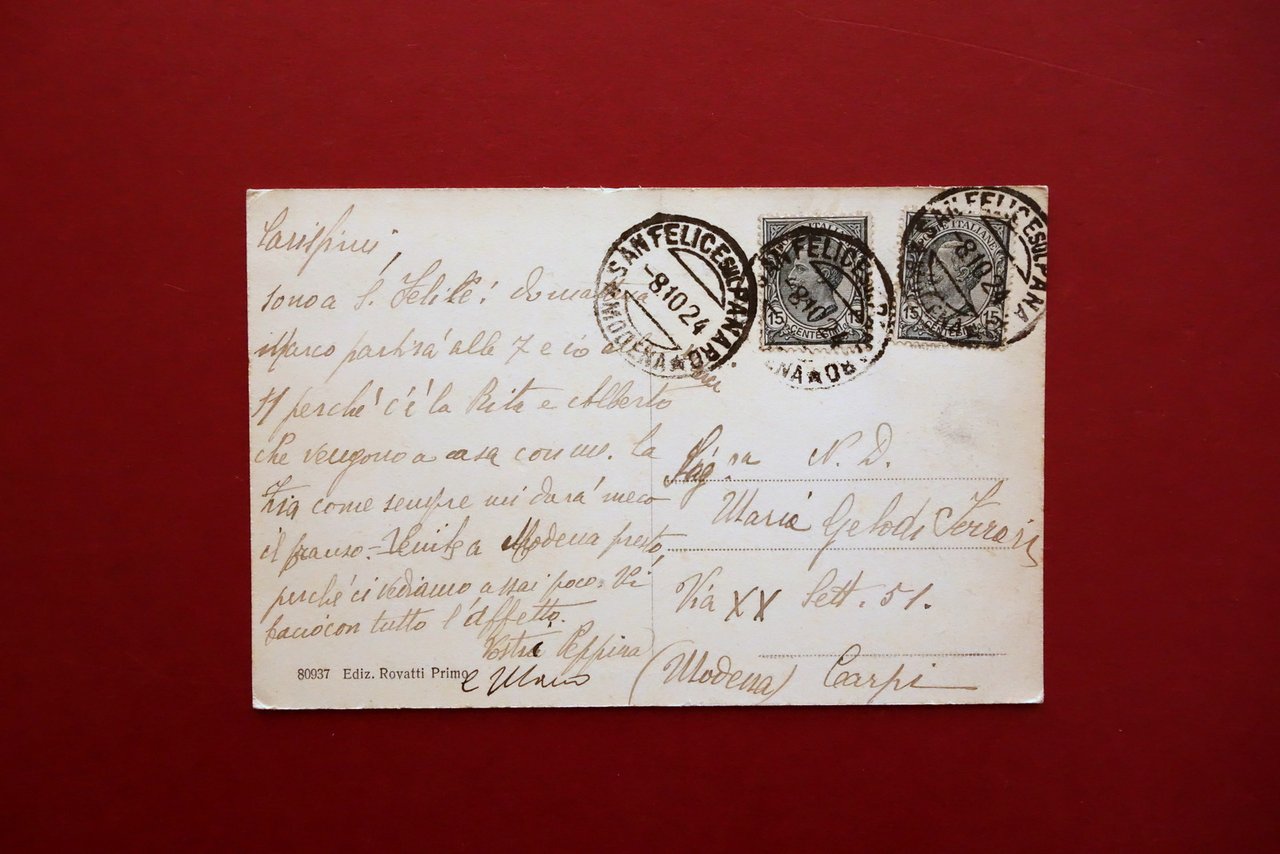 Carissimi,
sono a S. Felice! Domattina
Marco partirà alle 7 e io alle
11 perché c'é la Rita e Alberto
che vengono a casa con me. La
Zia come sempre mi darà meco
il pranzo. - Venite a Modena presto,
perché ci vediamo assai poco. Vi
bacio con tutto l'affetto.
Vostra Peppina
e
80937 Ediz. Rovatti Primo
SAN FELICE SUL PANARO
-8.10.24
★ (MODENA) ★
SAN FELICE SUL PANARO
-8.10
POSTE ITALIANE
15 CENTESIMI 15
SAN FELICE SUL PANARO
-8.10.24
POSTE ITALIANE
15 CENTESIMI 15
Sig.ra N. D.
Maria Gelodi Ferrari
Via XX Sett. 51.
(Modena) Carpi